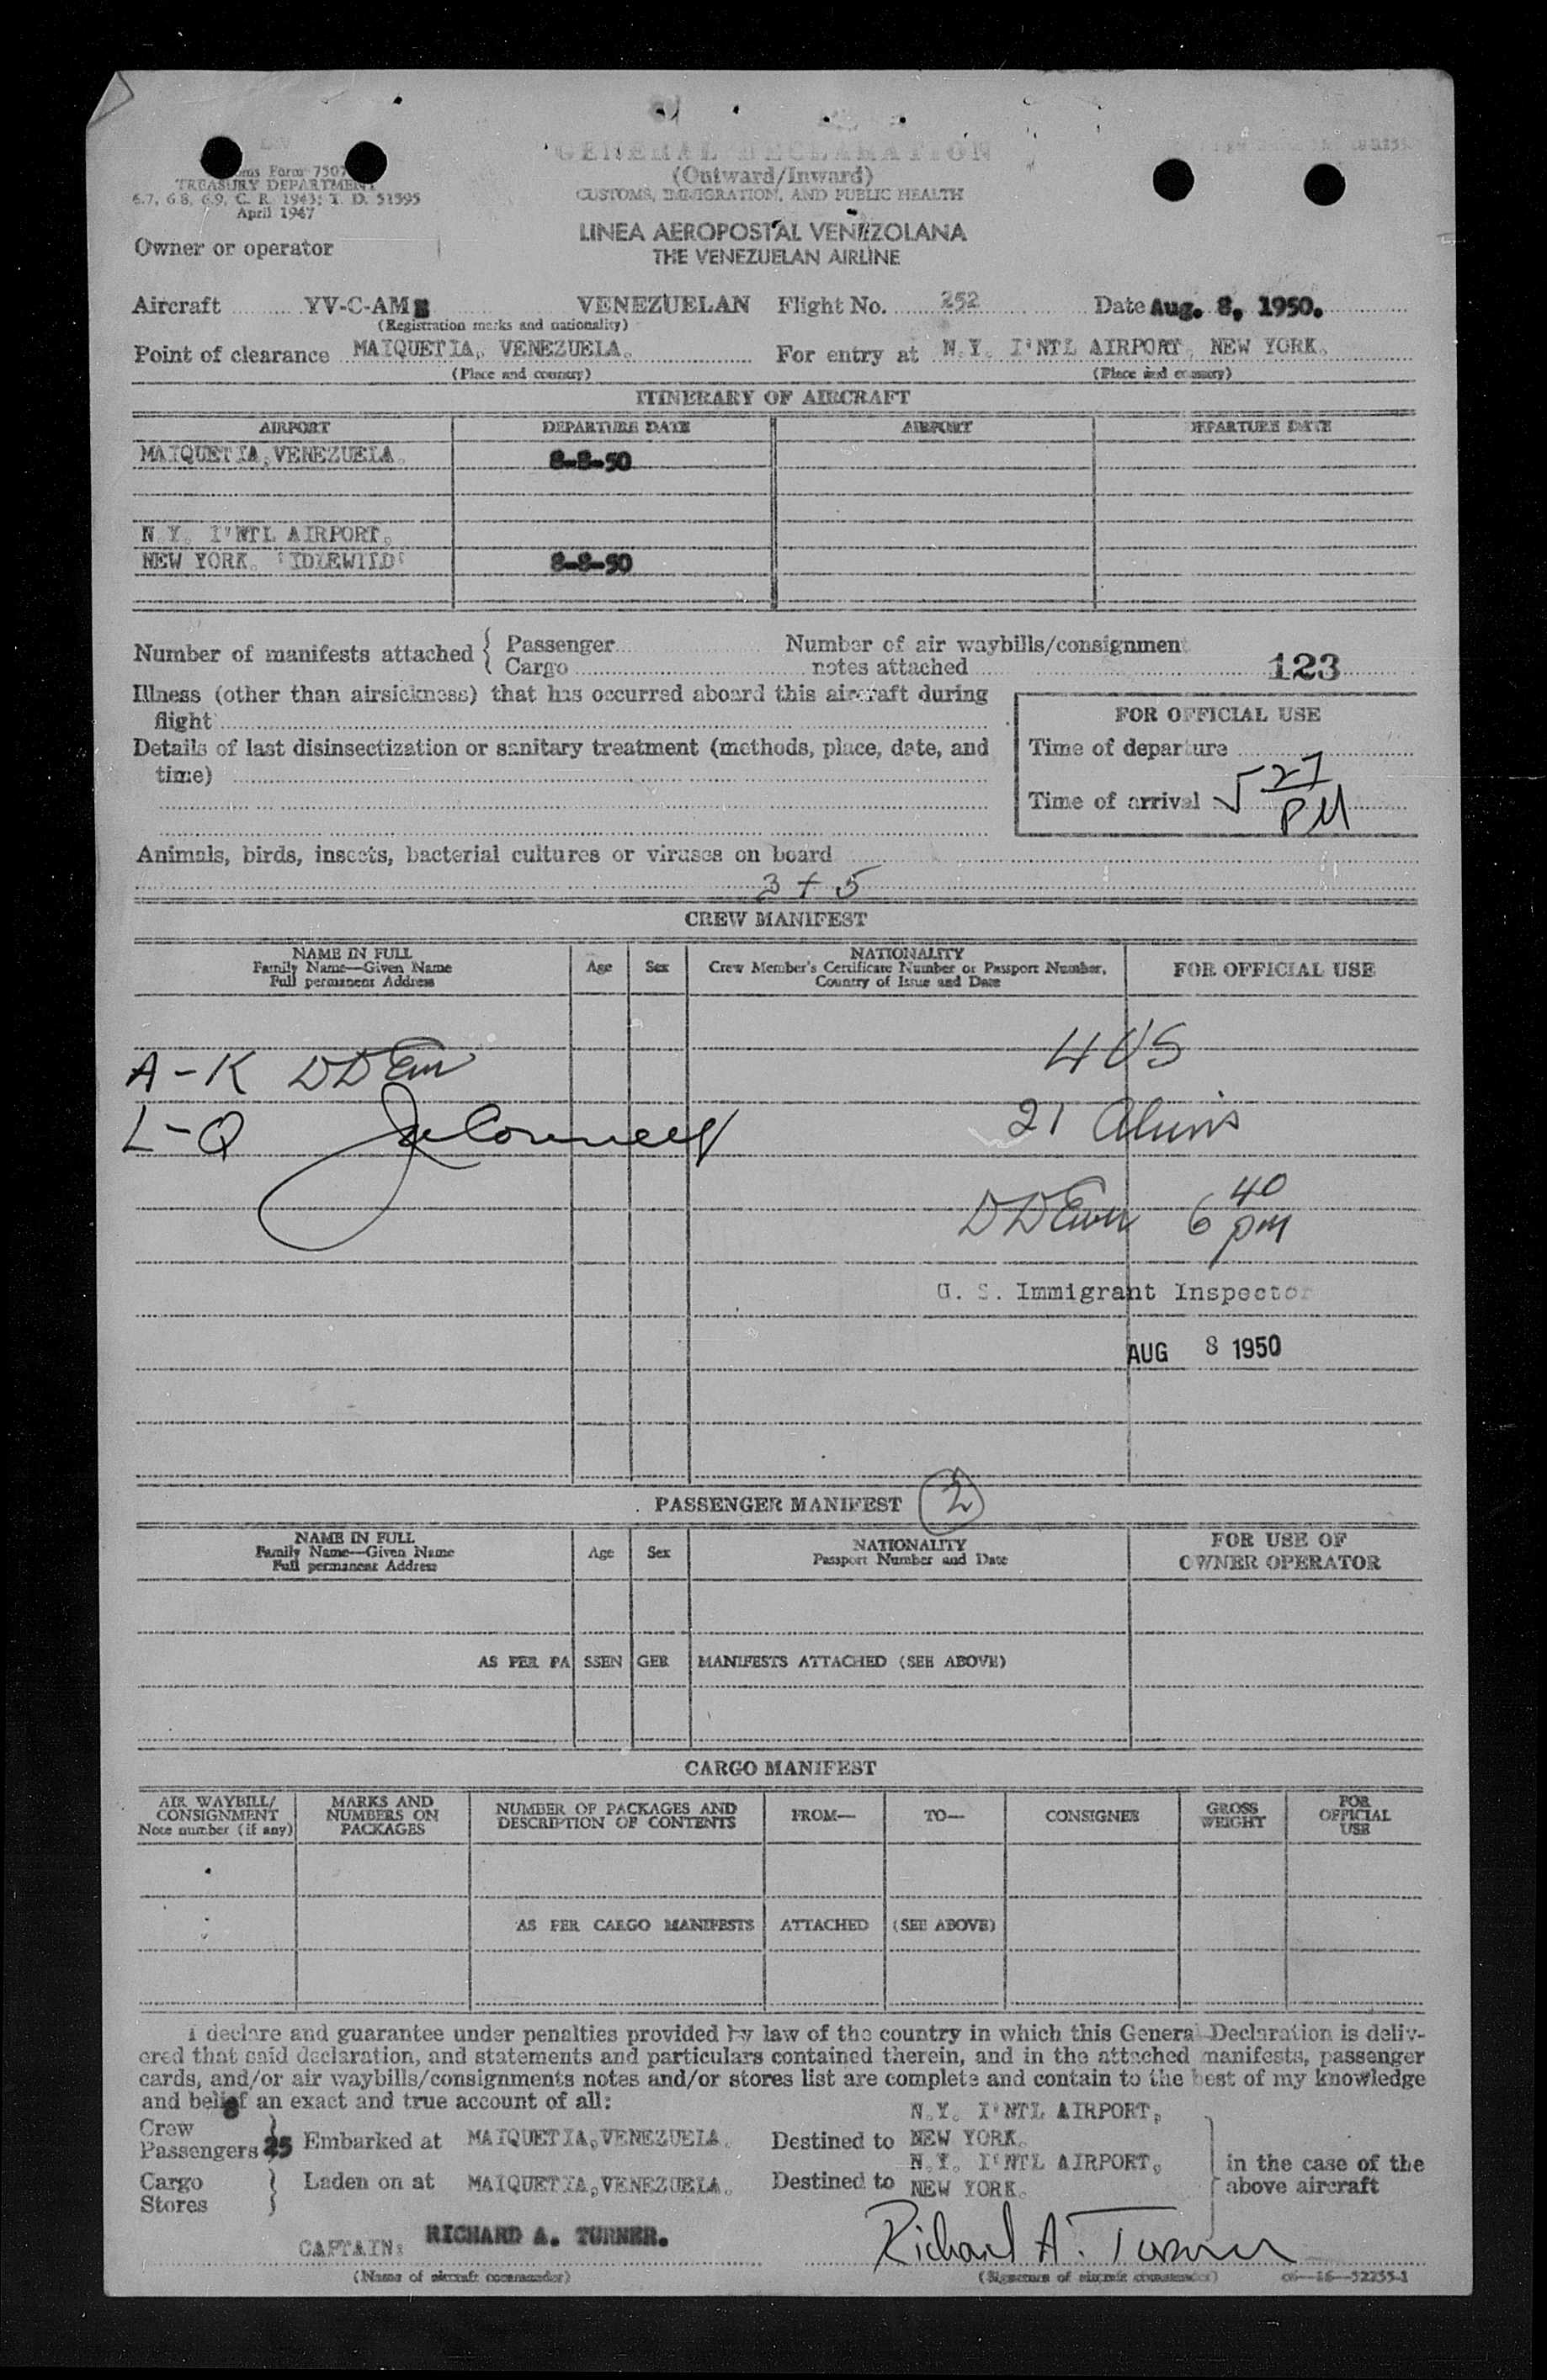 GENERAL DECLARATION
(Outward/Inward)
CUSTOMS, IMMIGRATION, AND PUBLIC HEALTH
Form 7507
TREASURY DEPARTMENT
6.7, 6.8, 6.9, C. R. 1943; T. D. 51595
April 1947
LINEA AEROPOSTAL VENEZOLANA
THE VENEZUELAN AIRLINE
Owner or operator
Aircraft YV-C-AM VENEZUELAN Flight No. 252 Date Aug. 8, 1950.
(Registration marks and nationality)
Point of clearance MAIQUETIA, VENEZUELA. For entry at N.Y. I'NTL AIRPORT, NEW YORK.
(Place and country) (Place and country)
ITINERARY OF AIRCRAFT
AIRPORT DEPARTURE DATE AIRPORT DEPARTURE DATE
MAIQUETIA, VENEZUELA. 8-8-50
N.Y. I'NTL AIRPORT,
NEW YORK. 'IDLEWILD' 8-8-50
Number of manifests attached { Passenger Number of air waybills/consignment
Cargo notes attached 123
Illness (other than airsickness) that has occurred aboard this aircraft during
flight
Details of last disinsectization or sanitary treatment (methods, place, date, and
time)
FOR OFFICIAL USE
Time of departure
Time of arrival 5 27 PM
Animals, birds, insects, bacterial cultures or viruses on board
3 + 5
CREW MANIFEST
NAME IN FULL Age Sex NATIONALITY FOR OFFICIAL USE
Family Name—Given Name Crew Member's Certificate Number or Passport Number,
Full permanent Address Country of Issue and Date
4 US
A - K
L - Q 21 Aliens
6 40 pm
U. S. Immigrant Inspector
AUG 8 1950
PASSENGER MANIFEST 2
NAME IN FULL Age Sex NATIONALITY FOR USE OF
Family Name—Given Name Passport Number and Date OWNER OPERATOR
Full permanent Address
AS PER PASSENGER MANIFESTS ATTACHED (SEE ABOVE)
CARGO MANIFEST
AIR WAYBILL/ MARKS AND NUMBER OF PACKAGES AND FROM— TO— CONSIGNEE GROSS FOR
CONSIGNMENT NUMBERS ON DESCRIPTION OF CONTENTS WEIGHT OFFICIAL
Note number (if any) PACKAGES USE
AS PER CARGO MANIFESTS ATTACHED (SEE ABOVE)
I declare and guarantee under penalties provided by law of the country in which this General Declaration is deliv-
ered that said declaration, and statements and particulars contained therein, and in the attached manifests, passenger
cards, and/or air waybills/consignments notes and/or stores list are complete and contain to the best of my knowledge
and belief an exact and true account of all:
N.Y. I'NTL AIRPORT,
Crew 8
Passengers 25 } Embarked at MAIQUETIA, VENEZUELA. Destined to NEW YORK.
N.Y. I'NTL AIRPORT, in the case of the
Cargo } Laden on at MAIQUETIA, VENEZUELA. Destined to NEW YORK. above aircraft
Stores
CAPTAIN: RICHARD A. TURNER. Richard A. Turner
(Name of aircraft commander) (Signature of aircraft commander) 16—52255-1